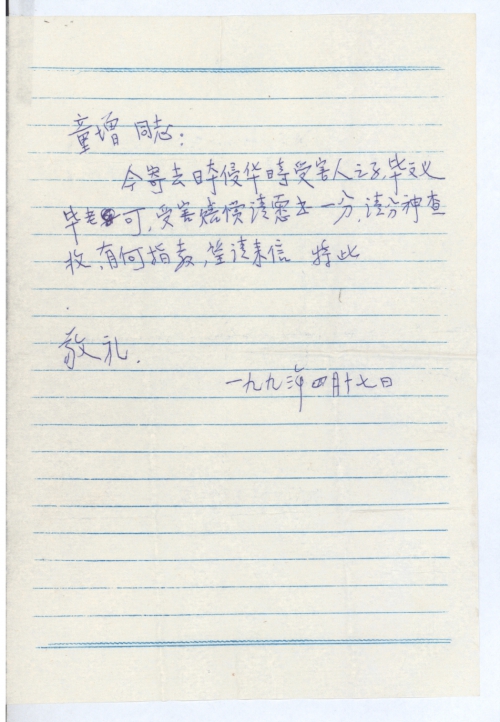 童增同志:
今寄去日本侵华时受害人之子,毕文义
毕老可,受害赔偿请愿书一分,请分神查
收,有何指教,望请来信 特此
敬礼.
一九九三年四月十七日